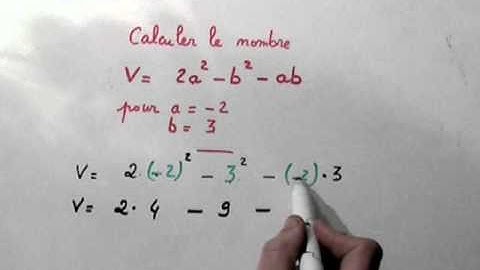 Calculer le nombre
V= 2a² - b² - ab
pour a = -2
b = 3
V= 2·(-2)² - 3² - (-2)·3
V= 2·4 - 9 -